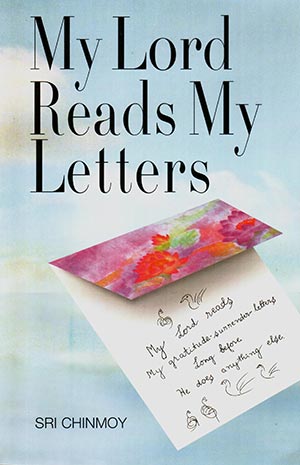 My Lord
Reads My
Letters
My Lord reads
My gratitude-surrender-letters
Long before
He does anything else.
SRI CHINMOY